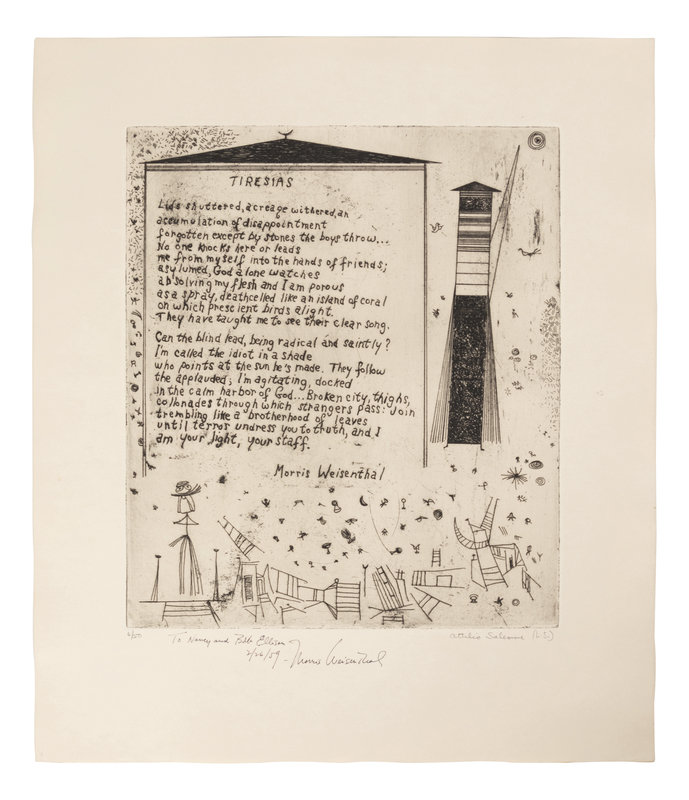 TIRESIAS
Lids shuttered, acreage withered, an
accumulation of disappointment
forgotten except by stones the boys throw...
No one knocks here or leads
me from myself into the hands of friends;
asylumed, God alone watches
absolving my flesh and I am porous
as a spray, deathcelled like an island of coral
on which prescient birds alight.
They have taught me to see their clear song.
Can the blind lead, being radical and saintly?
I'm called the idiot in a shade
who points at the sun he's made. They follow
the applauded; I'm agitating, docked
in the calm harbor of God... Broken city, thighs,
collonades through which strangers pass: Join
trembling like a brotherhood of leaves
until terror undress you to truth, and I
am your light, your staff.
Morris Weisenthal
/50
To Nancy and Bob Ellison
2/26/59 - Morris Weisenthal
Attilio Salemme (L.S.)